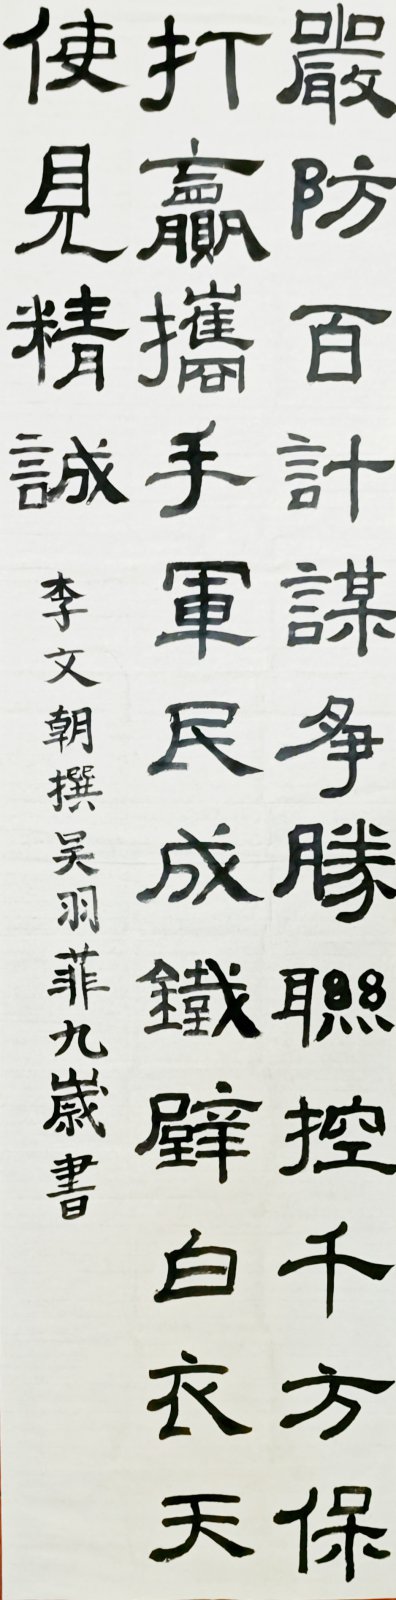 嚴防百計謀爭勝聯控千方保
打贏攜手軍民成鐵壁白衣天
使見精誠
李文朝撰吴羽菲九歲書